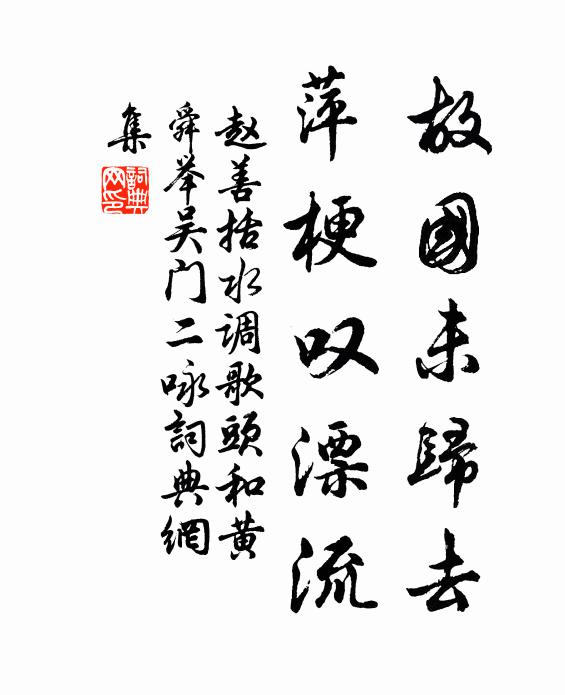 故國未歸去
萍梗叹漂流
赵善括水调歌頭和黄
舜举吴门二咏詞典網
集
詞典
网印